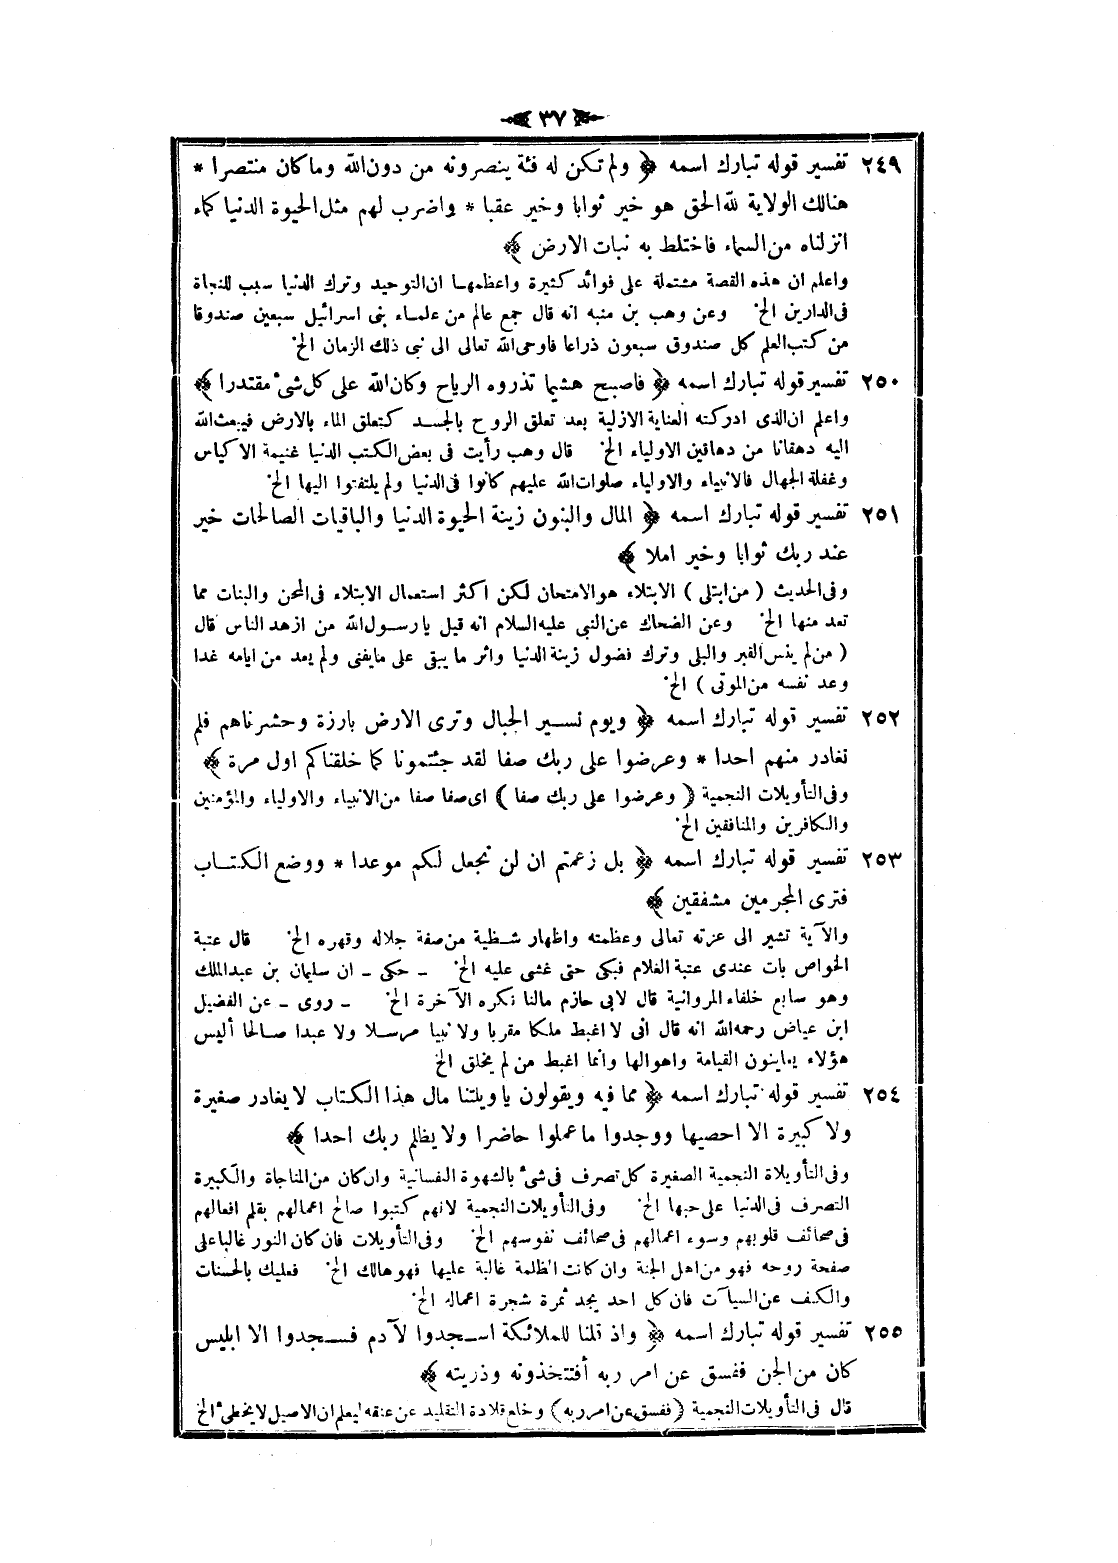 ٣٧
٢٤٩ تفسير قوله تبارك اسمه ﴿ ولم تكن له فئة ينصرونه من دون الله وما كان منتصرا *
هنالك الولاية لله الحق هو خير ثوابا وخير عقبا * واضرب لهم مثل الحيوة الدنيا كماء
انزلناه من السماء فاختلط به نبات الارض ﴾
واعلم ان هذه القصة مشتملة على فوائد كثيرة واعظمها ان التوحيد وترك الدنيا سبب للنجاة
فى الدارين الخ وعن وهب بن منبه انه قال جمع عالم من علماء بنى اسرائيل سبعين صندوقا
من كتب العلم كل صندوق سبعون ذراعا فاوحى الله تعالى الى نبى ذلك الزمان الخ
٢٥٠ تفسير قوله تبارك اسمه ﴿ فاصبح هشيما تذروه الرياح وكان الله على كل شىء مقتدرا ﴾
واعلم ان الذى ادركته العناية الازلية بعد تعلق الروح بالجسد كتعلق الماء بالارض فيبعث الله
اليه دهقانا من دهاقين الاولياء الخ قال وهب رأيت فى بعض الكتب الدنيا غنيمة الاكياس
وغفلة الجهال فالانبياء والاولياء صلوات الله عليهم كانوا فى الدنيا ولم يلتفتوا اليها الخ
٢٥١ تفسير قوله تبارك اسمه ﴿ المال والبنون زينة الحيوة الدنيا والباقيات الصالحات خير
عند ربك ثوابا وخير املا ﴾
وفى الحديث ( من ابتلى ) الابتلاء هو الامتحان لكن اكثر استعمال الابتلاء فى المحن والبنات مما
تعد منها الخ وعن الضحاك عن النبى عليه السلام انه قيل يا رسول الله من ازهد الناس قال
( من لم ينس القبر والبلى وترك فضول زينة الدنيا واثر ما يبقى على ما يفنى ولم يعد من ايامه غدا
وعد نفسه من الموتى ) الخ
٢٥٢ تفسير قوله تبارك اسمه ﴿ ويوم نسير الجبال وترى الارض بارزة وحشرناهم فلم
نغادر منهم احدا * وعرضوا على ربك صفا لقد جئتمونا كما خلقناكم اول مرة ﴾
وفى التأويلات النجمية ( وعرضوا على ربك صفا ) اى صفا صفا من الانبياء والاولياء والمؤمنين
والكافرين والمنافقين الخ
٢٥٣ تفسير قوله تبارك اسمه ﴿ بل زعمتم ان لن نجعل لكم موعدا * ووضع الكتاب
فترى المجرمين مشفقين ﴾
والآية تشير الى عزته تعالى وعظمته واظهار شظية من صفة جلاله وقهره الخ قال عتبة
الخواص بات عندى عتبة الغلام فبكى حتى غشى عليه الخ ـ حكى ـ ان سليمان بن عبد الملك
وهو سابع خلفاء المروانية قال لابى حازم مالنا نكره الآخرة الخ ـ روى ـ عن الفضيل
ابن عياض رحمه الله انه قال انى لا اغبط ملكا مقربا ولا نبيا مرسلا ولا عبدا صالحا أليس
هؤلاء يعاينون القيامة واهوالها وانما اغبط من لم يخلق الخ
٢٥٤ تفسير قوله تبارك اسمه ﴿ مما فيه ويقولون يا ويلتنا مال هذا الكتاب لا يغادر صغيرة
ولا كبيرة الا احصيها ووجدوا ما عملوا حاضرا ولا يظلم ربك احدا ﴾
وفى التأويلاة النجمية الصغيرة كل تصرف فى شىء بالشهوة النفسانية وان كان من المناجاة والكبيرة
التصرف فى الدنيا على حبها الخ وفى التأويلات النجمية لانهم كتبوا صالح اعمالهم بقلم افعالهم
فى صحائف قلوبهم وسوء اعمالهم فى صحائف نفوسهم الخ وفى التأويلات فان كان النور غالبا على
صفحة روحه فهو من اهل الجنة وان كانت الظلمة غالبة عليها فهو هالك الخ فعليك بالحسنات
والكف عن السيآت فان كل احد يجد ثمرة شجرة اعماله الخ
٢٥٥ تفسير قوله تبارك اسمه ﴿ واذ قلنا للملائكة اسجدوا لآدم فسجدوا الا ابليس
كان من الجن ففسق عن امر ربه أفتتخذونه وذريته ﴾
قال فى التأويلات النجمية ( ففسق عن امر ربه ) وخلع قلادة التقليد عن عنقه ليعلم ان الاصيل لا يخطىء الخ